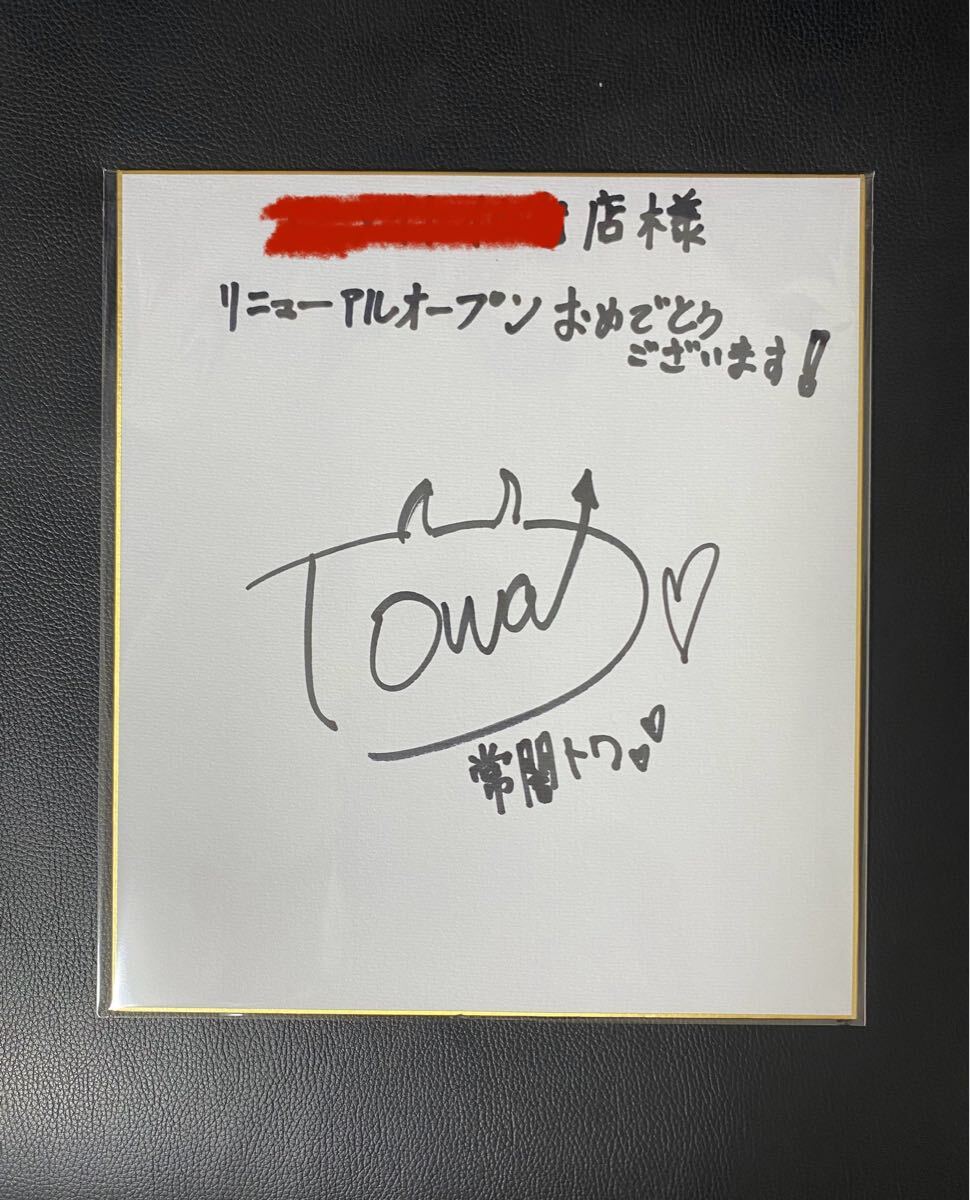 店様
リニューアルオープンおめでとう
ございます!
Towa
常闇トワ